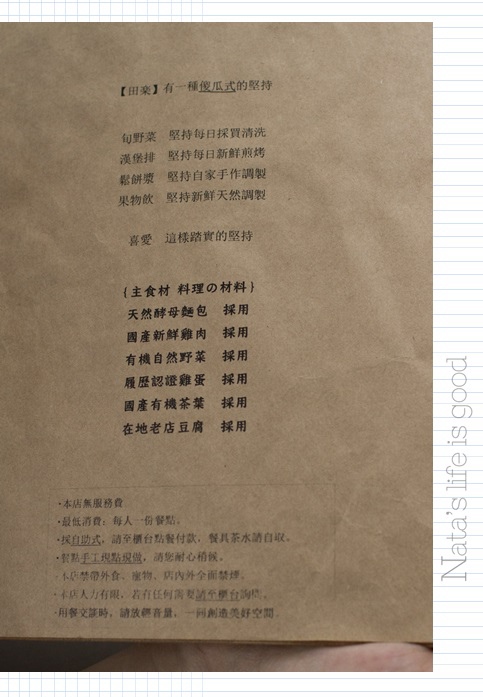 【田楽】有一種傻瓜式的堅持
旬野菜　堅持每日採買清洗
漢堡排　堅持每日新鮮煎烤
鬆餅漿　堅持自家手作調製
果物飲　堅持新鮮天然調製
喜愛　這樣踏實的堅持
{主食材 料理の材料}
天然酵母麵包　採用
國產新鮮雞肉　採用
有機自然野菜　採用
履歷認證雞蛋　採用
國產有機茶葉　採用
在地老店豆腐　採用
·本店無服務費
·最低消費：每人一份餐點。
·採自助式，請至櫃台點餐付款，餐具茶水請自取。
·餐點手工現點現做，請您耐心稍候。
·本店禁帶外食、寵物，店內外全面禁煙。
·本店人力有限，若有任何需要請至櫃台詢問。
·用餐交談時，請放輕音量，一同創造美好空間。
Nata's life is good